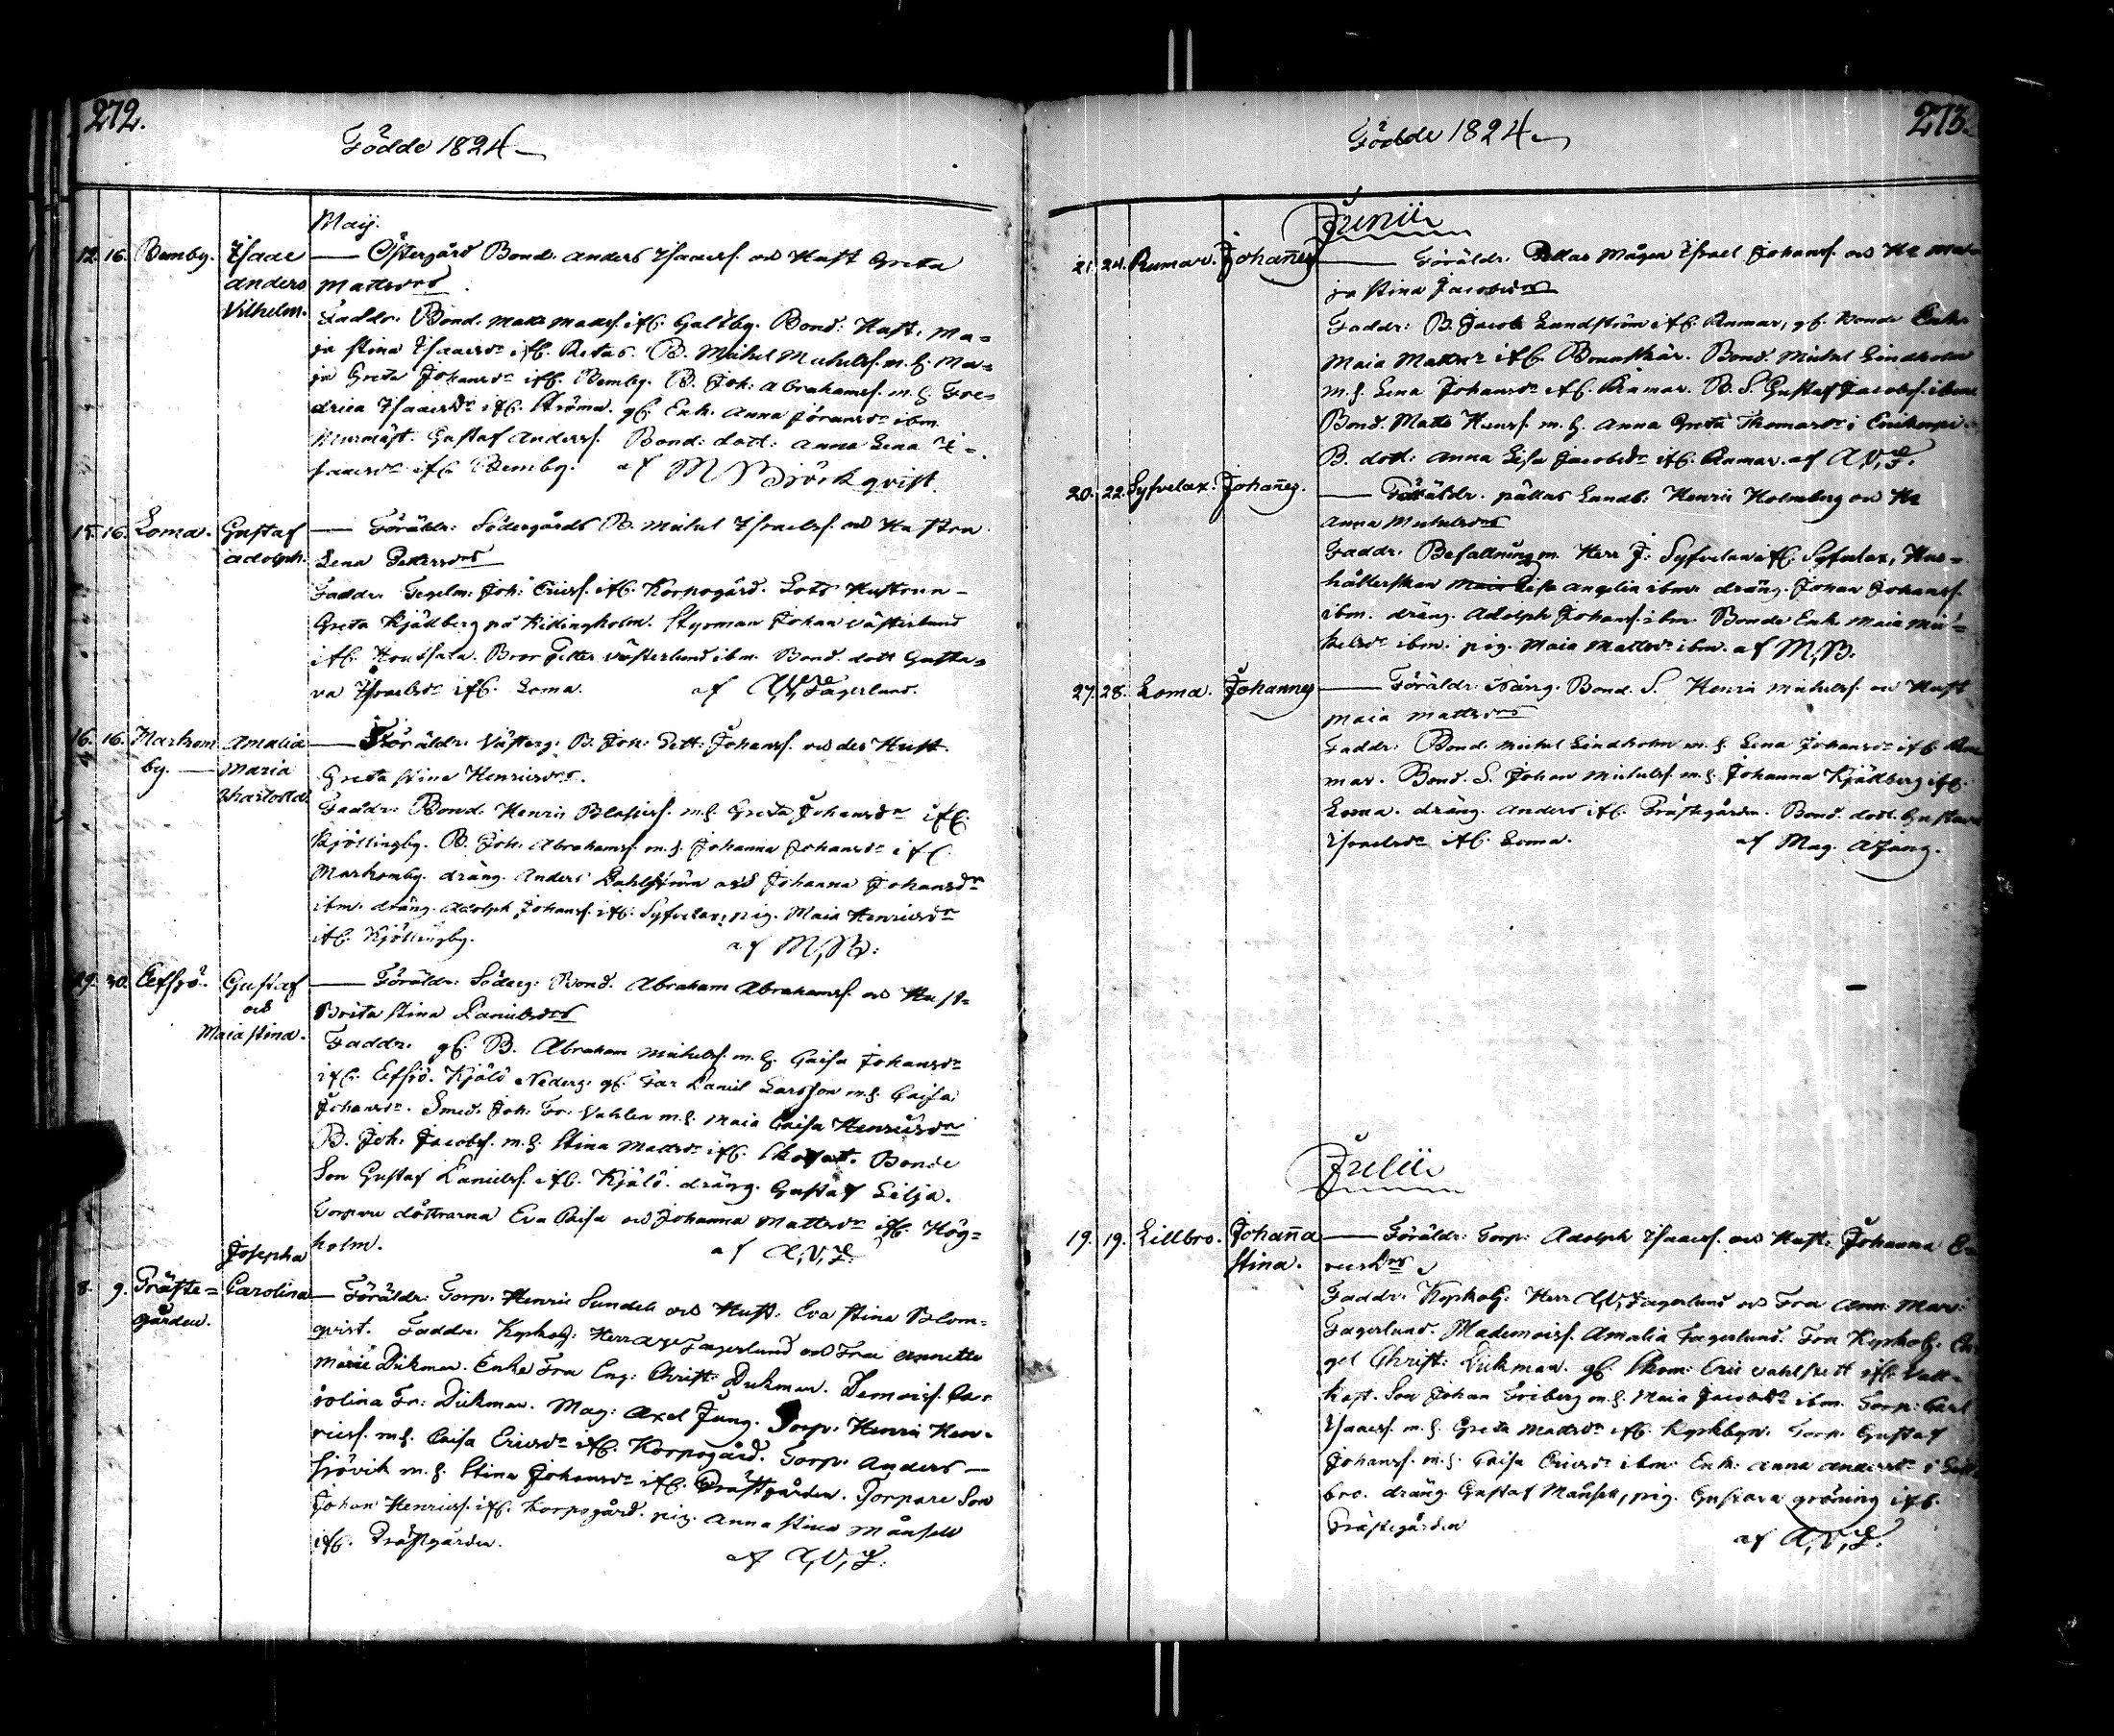 272.
Födde 1824
Maij.
12. 16. Bemby. Isaac — Östergård Bond. Anders Isaacss. och Hust Greta
Anders Mattsdr
Vilhelm. Faddr. Bond. Matts Matss. ifr. Galtby. Bond: Hust. Ma=
ja Stina Isaacsdr ifr. Retas. B. Michel Michelss. m. h. Ma=
ja Greta Johansdr ifr. Bemby. B. Joh: Abrahamss. m. h. Fre=
drica Isaacsdr ifr. Ströma. gl. Enk. Anna Göransdr ibm.
Murmäst. Gustaf Anderss. Bond: dott: Anna Lena I=
saacsdr ifr. Bemby. af M Björkqvist.
15. 16. Loma. Gustaf — Föräldr: Södergårds B. Michel Israelss. och Hustru
Adolph. Lena Pettersdr
Faddr. Joh: Ericss. ifr. Korpogård. Lots Hustrun
Greta Kjädberg på Kidingholm. Styrman Johan Västerlund
ifr. Houtsala. Bror Petter Västerlund ibm. Bond. dott Gusta=
va Israelsdr ifr. Loma. af A,V, Fagerlund.
16. 16. Markom Amalia — Föräldr: Västerg: B. Joh: Pett: Johanss. och des Hust
by. — Maria Greta Stina Henricsdr.
Charlotta. Faddr: Bond. Henric Blasiess. m. h. Greta Johansdr ifr.
Kjöttingby. B. Joh: Abrahamss. m. h. Johanna Johansdr ifr.
Markomby. dräng. Anders Dahlström och Johanna Johansdr
ibm. dräng. Adolph Johanss. ifr. Syfvelax, pig. Maia Henricsdr
ifr. Kjöttingby. af M, B:
29. 30. Eefsjö. Gustaf — Föräldr: Söderg: Bond. Abraham Abrahamss. och Hust=
och Brita Stina Danielsdr
Maia Stina. Faddr. gl. B. Abraham Michelss. m. h. Caisa Johansdr
ifr. Eefsjö. Kjälö Nederg: gl. Far Daniel Larsson m. h. Caisa
Johansdr. Smed. Joh: Fr: Vahlen m. h. Maia Caisa Henricsdr
B. Joh: Jacobss. m. h. Stina Mattsdr ifr. Bonde
Son Gustaf Danielss. ifr. Kjälö. dräng. Gustaf Lilja.
Torpare döttrarna Eva Caisa och Johanna Mattsdr ifr. Hög=
holm. af A,V,F.
Josepha
8. 9. Präste= Carolina — Föräldr: Torp. Henric Sundell och Hust: Eva Stina Blom=
gården. qvist. Faddr: Kyrkoh: Herr A V Fagerlund och Fru Annette
Marie Dickman. Enke Fru Eng: Christ: Dickman. Demoiss. Ca=
rolina Fr: Dickman. Mag: Axel Jung. Torp. Henric Hen=
ricss. m. h. Caisa Ericsdr ifr. Korpogård. Torp. Anders —
Sjövik m. h. Stina Johansdr ifr. Prästgården. Torpare Son
Johan Henricss. ifr. Korpogård. pig. Anna Stina Månsell
ifr. Prästgården. af A,V,F.
273.
Födde 1824
Junii
21. 24. Rumar. Johannes — Föräldr. Mågen Israel Johanss. och H Ma=
ja Stina Jacobsdr
Faddr: B. Jacob Lundström ifr. Rumar, gl. Bonde Enk.
Maia Mattsdr ifr. Brunskär. Bond. Michel Lindholm
m. h. Lena Johansdr ifr. Rumar. B. S. Gustaf Jacobss. ibm.
Bond. Matts Hanss. m. h. Anna Greta Thomasdr i
B. dott: Anna Lisa Jacobsdr ifr. Rumar. af A,V,F.
20. 22. Syfvelax. Johannes. — Föräldr. Henric Holmberg och H
Anna Michelsdr
Faddr. Befallningsm. Herr J: Syfvelax, Hus=
hållerskan Lisa Angelin ibm. dräng. Johan Johanss.
ibm. dräng. Adolph Johanss. ibm. Bonde Enk Maia Mi=
kelsdr ibm. pig. Maia Mattsdr ibm. af M,B.
27. 28. Loma. Johannes — Föräldr. Norrg. Bond. S. Henric Michelss. och Hust
Maia Mattsdr
Faddr: Bond. Michel Lindholm m. h. Lena Johansdr ifr. Ru
mar. Bond. S. Johan Michelss. m. h. Johanna Kjädberg ifr.
Loma. dräng. Anders ifr. Prästegården. Bond. dott. Gustava
Israelsdr ifr. Loma. af Mag. A Jung.
Julii
19. 19. Lillbro. Johanna — Föräldr: Torp. Adolph Isaacss. och Hust: Johanna E=
Stina. ricsdr
Faddr. Kyrkoh: Herr A,V, Fagerlund och Fru Ann: Mari:
Fagerlund. Mademoiss. Amalia Fagerlund. Fru Kyrkoh:
gel Christ: Dickman. gl. Skom: Eric Vahlstett ifr.
Son Johan Friberg m. h. Maia Jacobsdr ibm. Torp. Carl
Isaacss. m. h. Greta Mattsdr ifr. Kyrkbyn. Torp. Gustaf
Johanss. m. h. Caisa Ericsdr ibm. Enk: Anna Andersdr i Lill
bro. dräng. Gustaf Månsell, pig. Gustava Gröning ifr.
Prästegården af A,V,F.